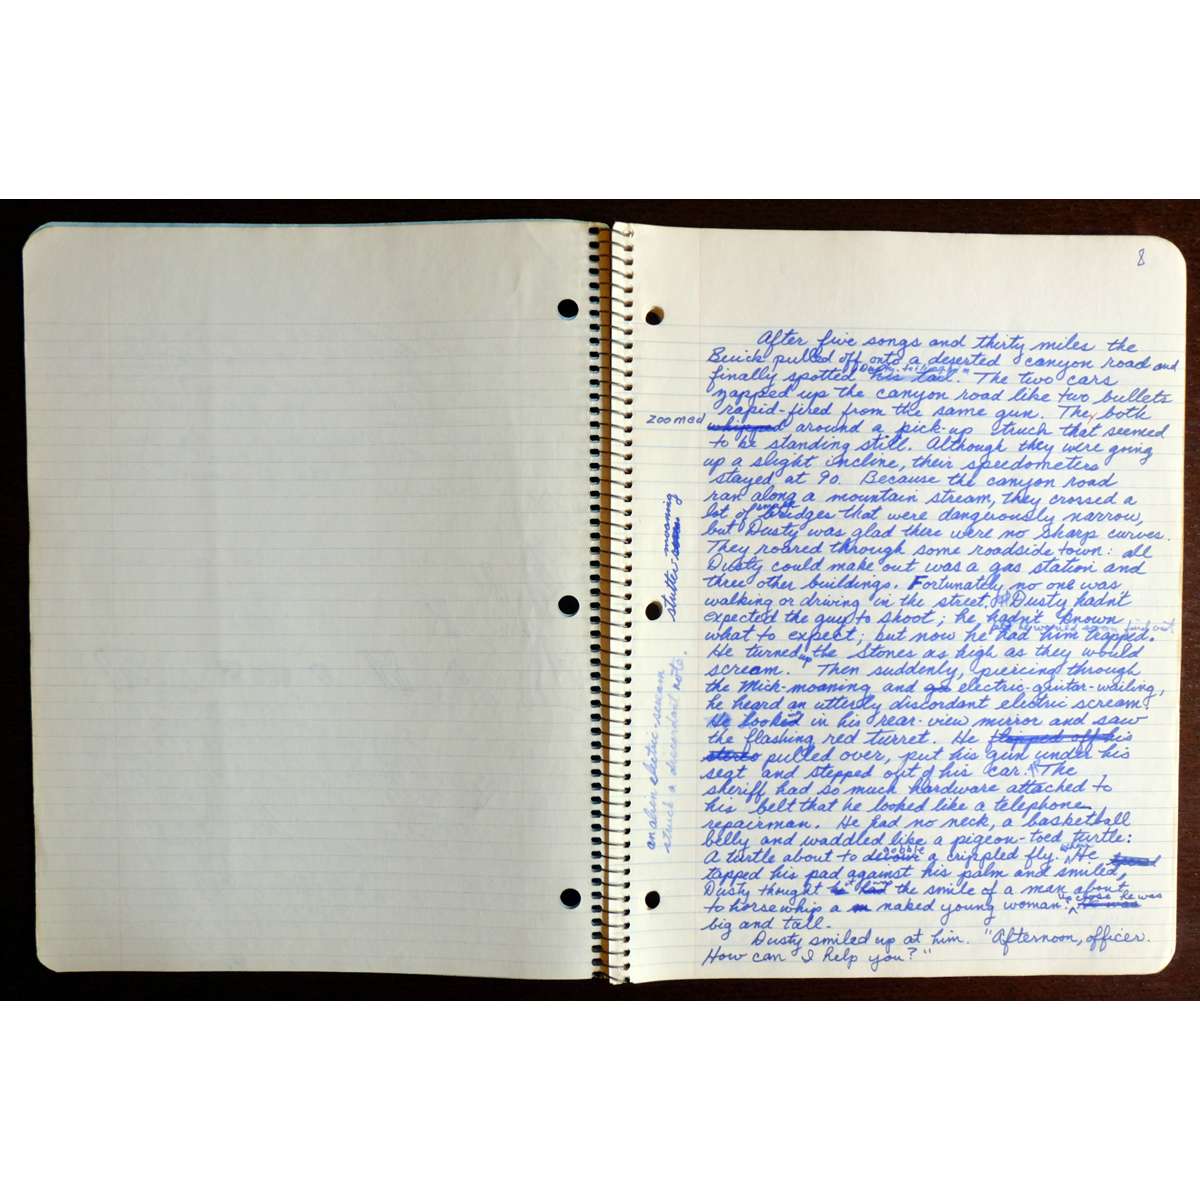 8
After five songs and thirty miles the
Buick pulled off onto a deserted canyon road and
finally spotted his tail. The two cars
zapped up the canyon road like two bullets
rapid-fired from the same gun. They both
zoomed
whipped around a pick-up truck that seemed
to be standing still. Although they were going
up a slight incline, their speedometers
stayed at 90. Because the canyon road
ran along a mountain stream, they crossed a
simple
lot of bridges that were dangerously narrow,
but Dusty was glad there were no sharp curves.
They roared through some roadside town: all
Dusty could make out was a gas station and
three other buildings. Fortunately, no one was
walking or driving in the street. Dusty hadn't
expected the guy to shoot; he hadn't known
he would soon find out
what to expect; but now he had him trapped.
He turned up the Stones as high as they would
scream. Then suddenly, piercing through
the Mick-moaning and electric-guitar-wailing,
he heard an utterly discordant electric scream
He looked in his rear-view mirror and saw
the flashing red turret. He flipped off his
stereo pulled over, put his gun under his
seat and stepped out of his car. The
sheriff had so much hardware attached to
his belt that he looked like a telephone
repairman. He had no neck, a basketball
belly and waddled like a pigeon-toed turtle:
gobble
A turtle about to devour a crippled fly. When He
tapped his pad against his palm and smiled,
Dusty thought he had the smile of a man about
to horsewhip a naked young woman. Up close he was He was
big and tall.
Dusty smiled up at him. "Afternoon, officer.
How can I help you?"
stutter moaning
an alien electric scream
struck a discordant note.